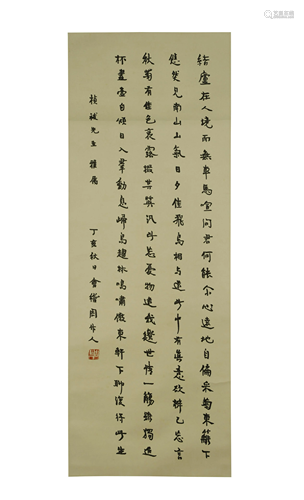 結廬在人境而無車馬喧問君何能尔心遠地自偏采菊東籬下
悠然見南山山氣日夕佳飛鳥相与還此中有真意欲辨已忘言
秋菊有佳色裛露掇其英汎此忘憂物遠我遺世情一觴雖獨進
杯盡壺自傾日入羣動息歸鳥趨林鳴嘯傲東軒下聊復得此生
先生 雅属
丁亥秋日會稽周作人